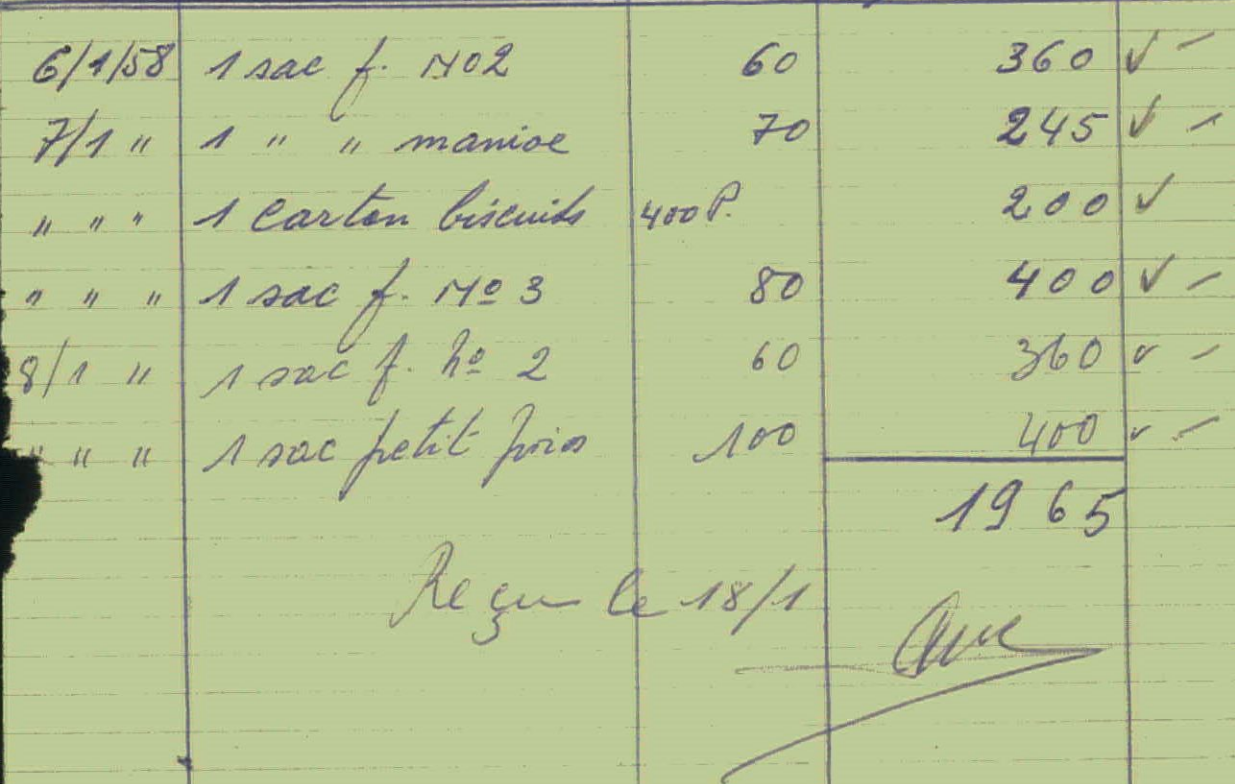 6/1/58 1 sac f. No2 60 360 ✓ -
7/1 " 1 " " manioc 70 245 ✓ -
" " " 1 carton biscuits 400 P. 200 ✓
" " " 1 sac f. No 3 80 400 ✓ -
8/1 " 1 sac f. no 2 60 360 ✓ -
" " " 1 sac petit pois 100 400 ✓ -
1965
Reçu le 18/1